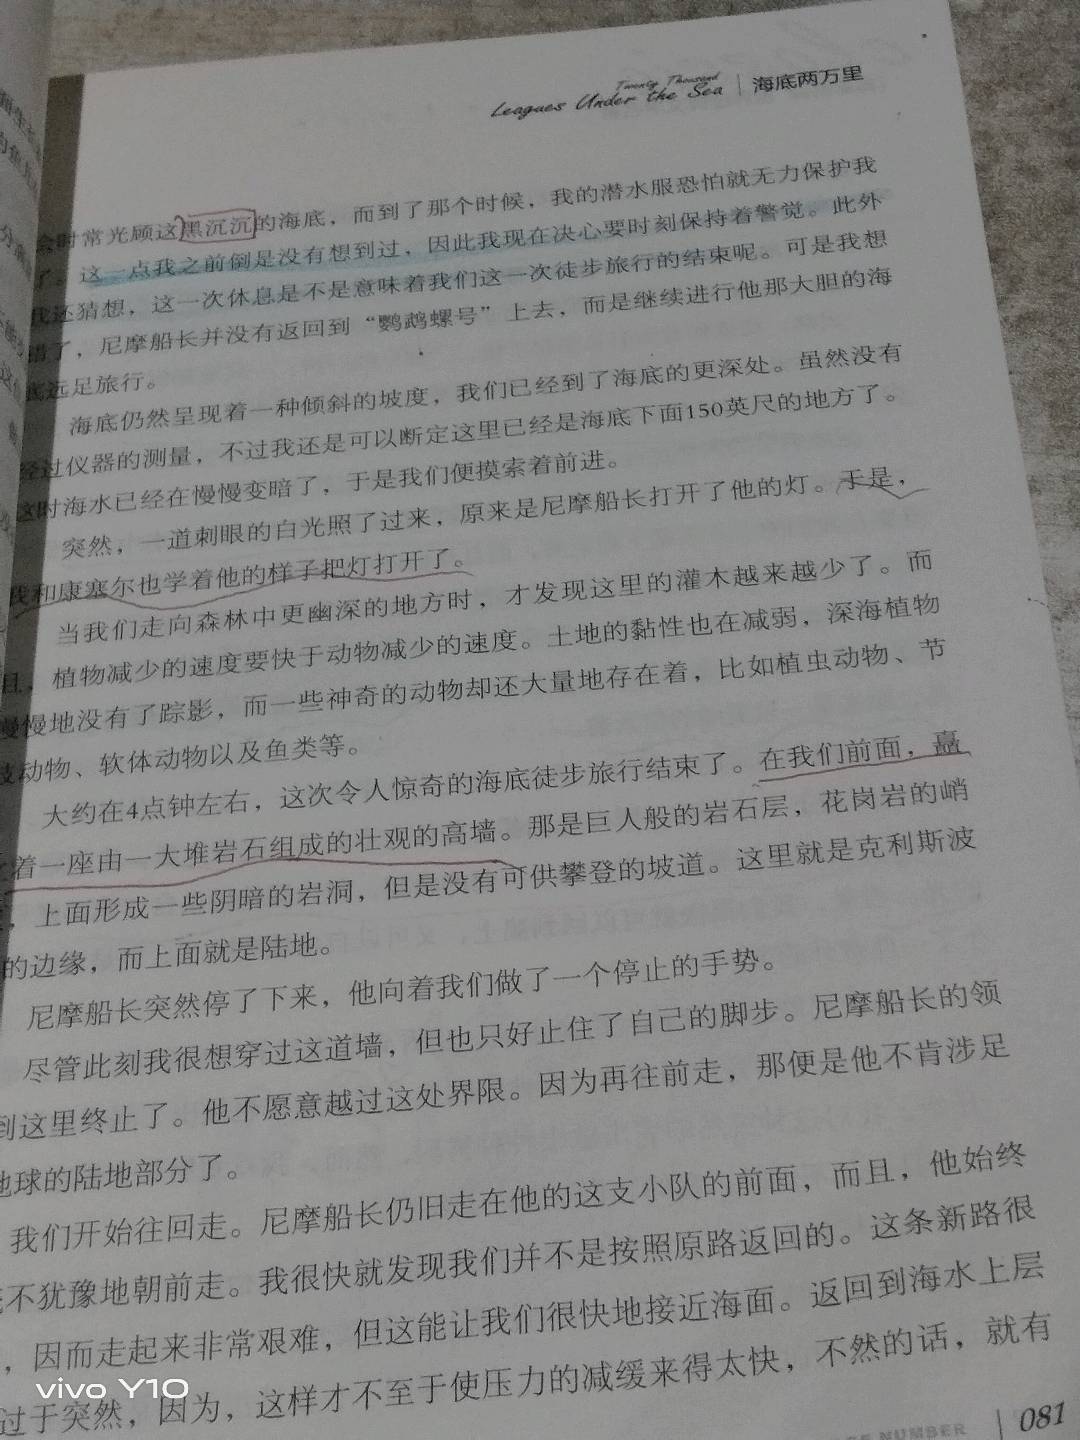 Twenty Thousand
Leagues Under the Sea | 海底两万里
会时常光顾这黑沉沉的海底，而到了那个时候，我的潜水服恐怕就无力保护我
了，这一点我之前倒是没有想到过，因此我现在决心要时刻保持着警觉。此外
我还猜想，这一次休息是不是意味着我们这一次徒步旅行的结束呢。可是我想
错了，尼摩船长并没有返回到“鹦鹉螺号”上去，而是继续进行他那大胆的海
底远足旅行。
海底仍然呈现着一种倾斜的坡度，我们已经到了海底的更深处。虽然没有
经过仪器的测量，不过我还是可以断定这里已经是海底下面150英尺的地方了。
这时海水已经在慢慢变暗了，于是我们便摸索着前进。
突然，一道刺眼的白光照了过来，原来是尼摩船长打开了他的灯。于是，
我和康塞尔也学着他的样子把灯打开了。
当我们走向森林中更幽深的地方时，才发现这里的灌木越来越少了。而
且，植物减少的速度要快于动物减少的速度。土地的黏性也在减弱，深海植物
慢慢地没有了踪影，而一些神奇的动物却还大量地存在着，比如植虫动物、节
肢动物、软体动物以及鱼类等。
大约在4点钟左右，这次令人惊奇的海底徒步旅行结束了。在我们前面，矗
着一座由一大堆岩石组成的壮观的高墙。那是巨人般的岩石层，花岗岩的峭
，上面形成一些阴暗的岩洞，但是没有可供攀登的坡道。这里就是克利斯波
的边缘，而上面就是陆地。
尼摩船长突然停了下来，他向着我们做了一个停止的手势。
尽管此刻我很想穿过这道墙，但也只好止住了自己的脚步。尼摩船长的领
到这里终止了。他不愿意越过这处界限。因为再往前走，那便是他不肯涉足
地球的陆地部分了。
我们开始往回走。尼摩船长仍旧走在他的这支小队的前面，而且，他始终
不犹豫地朝前走。我很快就发现我们并不是按照原路返回的。这条新路很
，因而走起来非常艰难，但这能让我们很快地接近海面。返回到海水上层
过于突然，因为，这样才不至于使压力的减缓来得太快，不然的话，就有
NUMBER | 081
vivo Y10